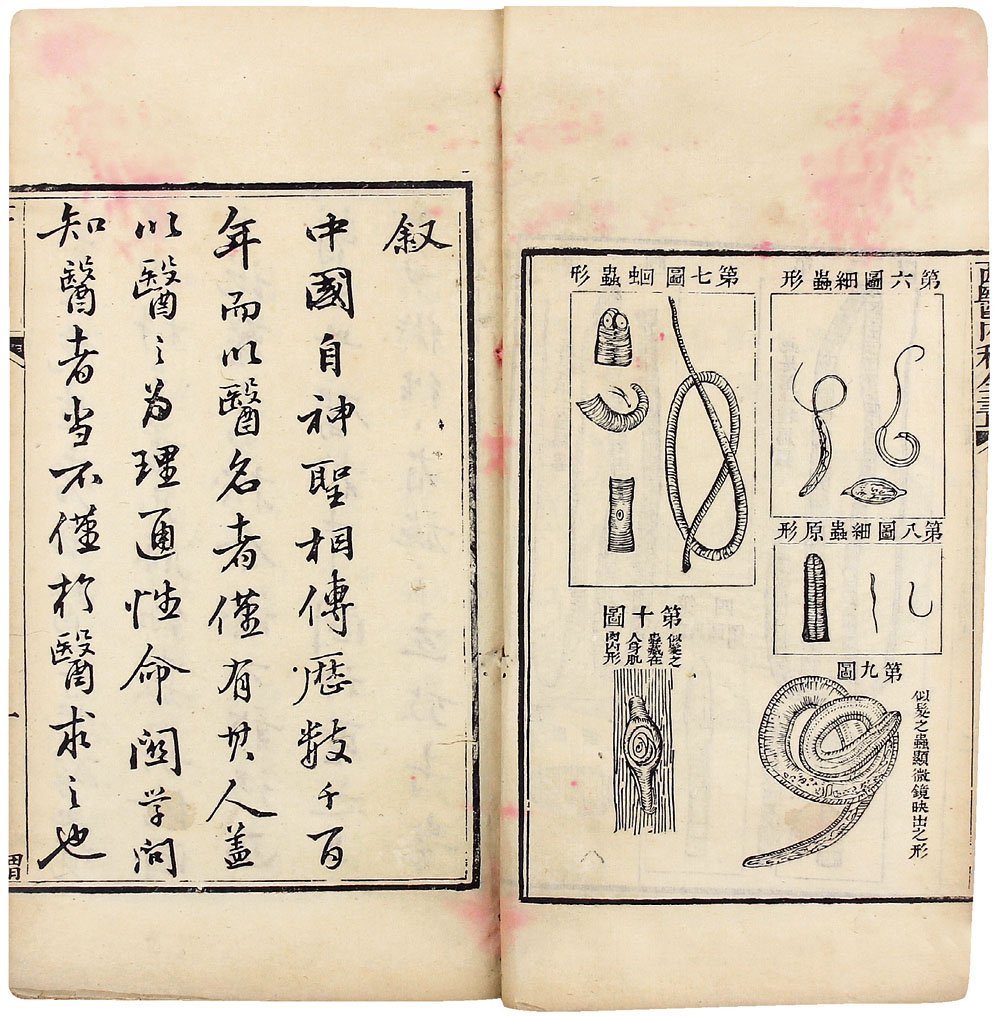 第六圖細蟲形
第七圖蛔蟲形
第八圖細蟲原形
第九圖
似髮之蟲顯微鏡映出之形
第十圖
似髮之
蟲蟄在
人身肌
肉內形
叙
中國自神聖相傳歷數千百
年而以醫名者僅有其人蓋
以醫之為理通性命關學問
知醫者當不僅於醫求之也